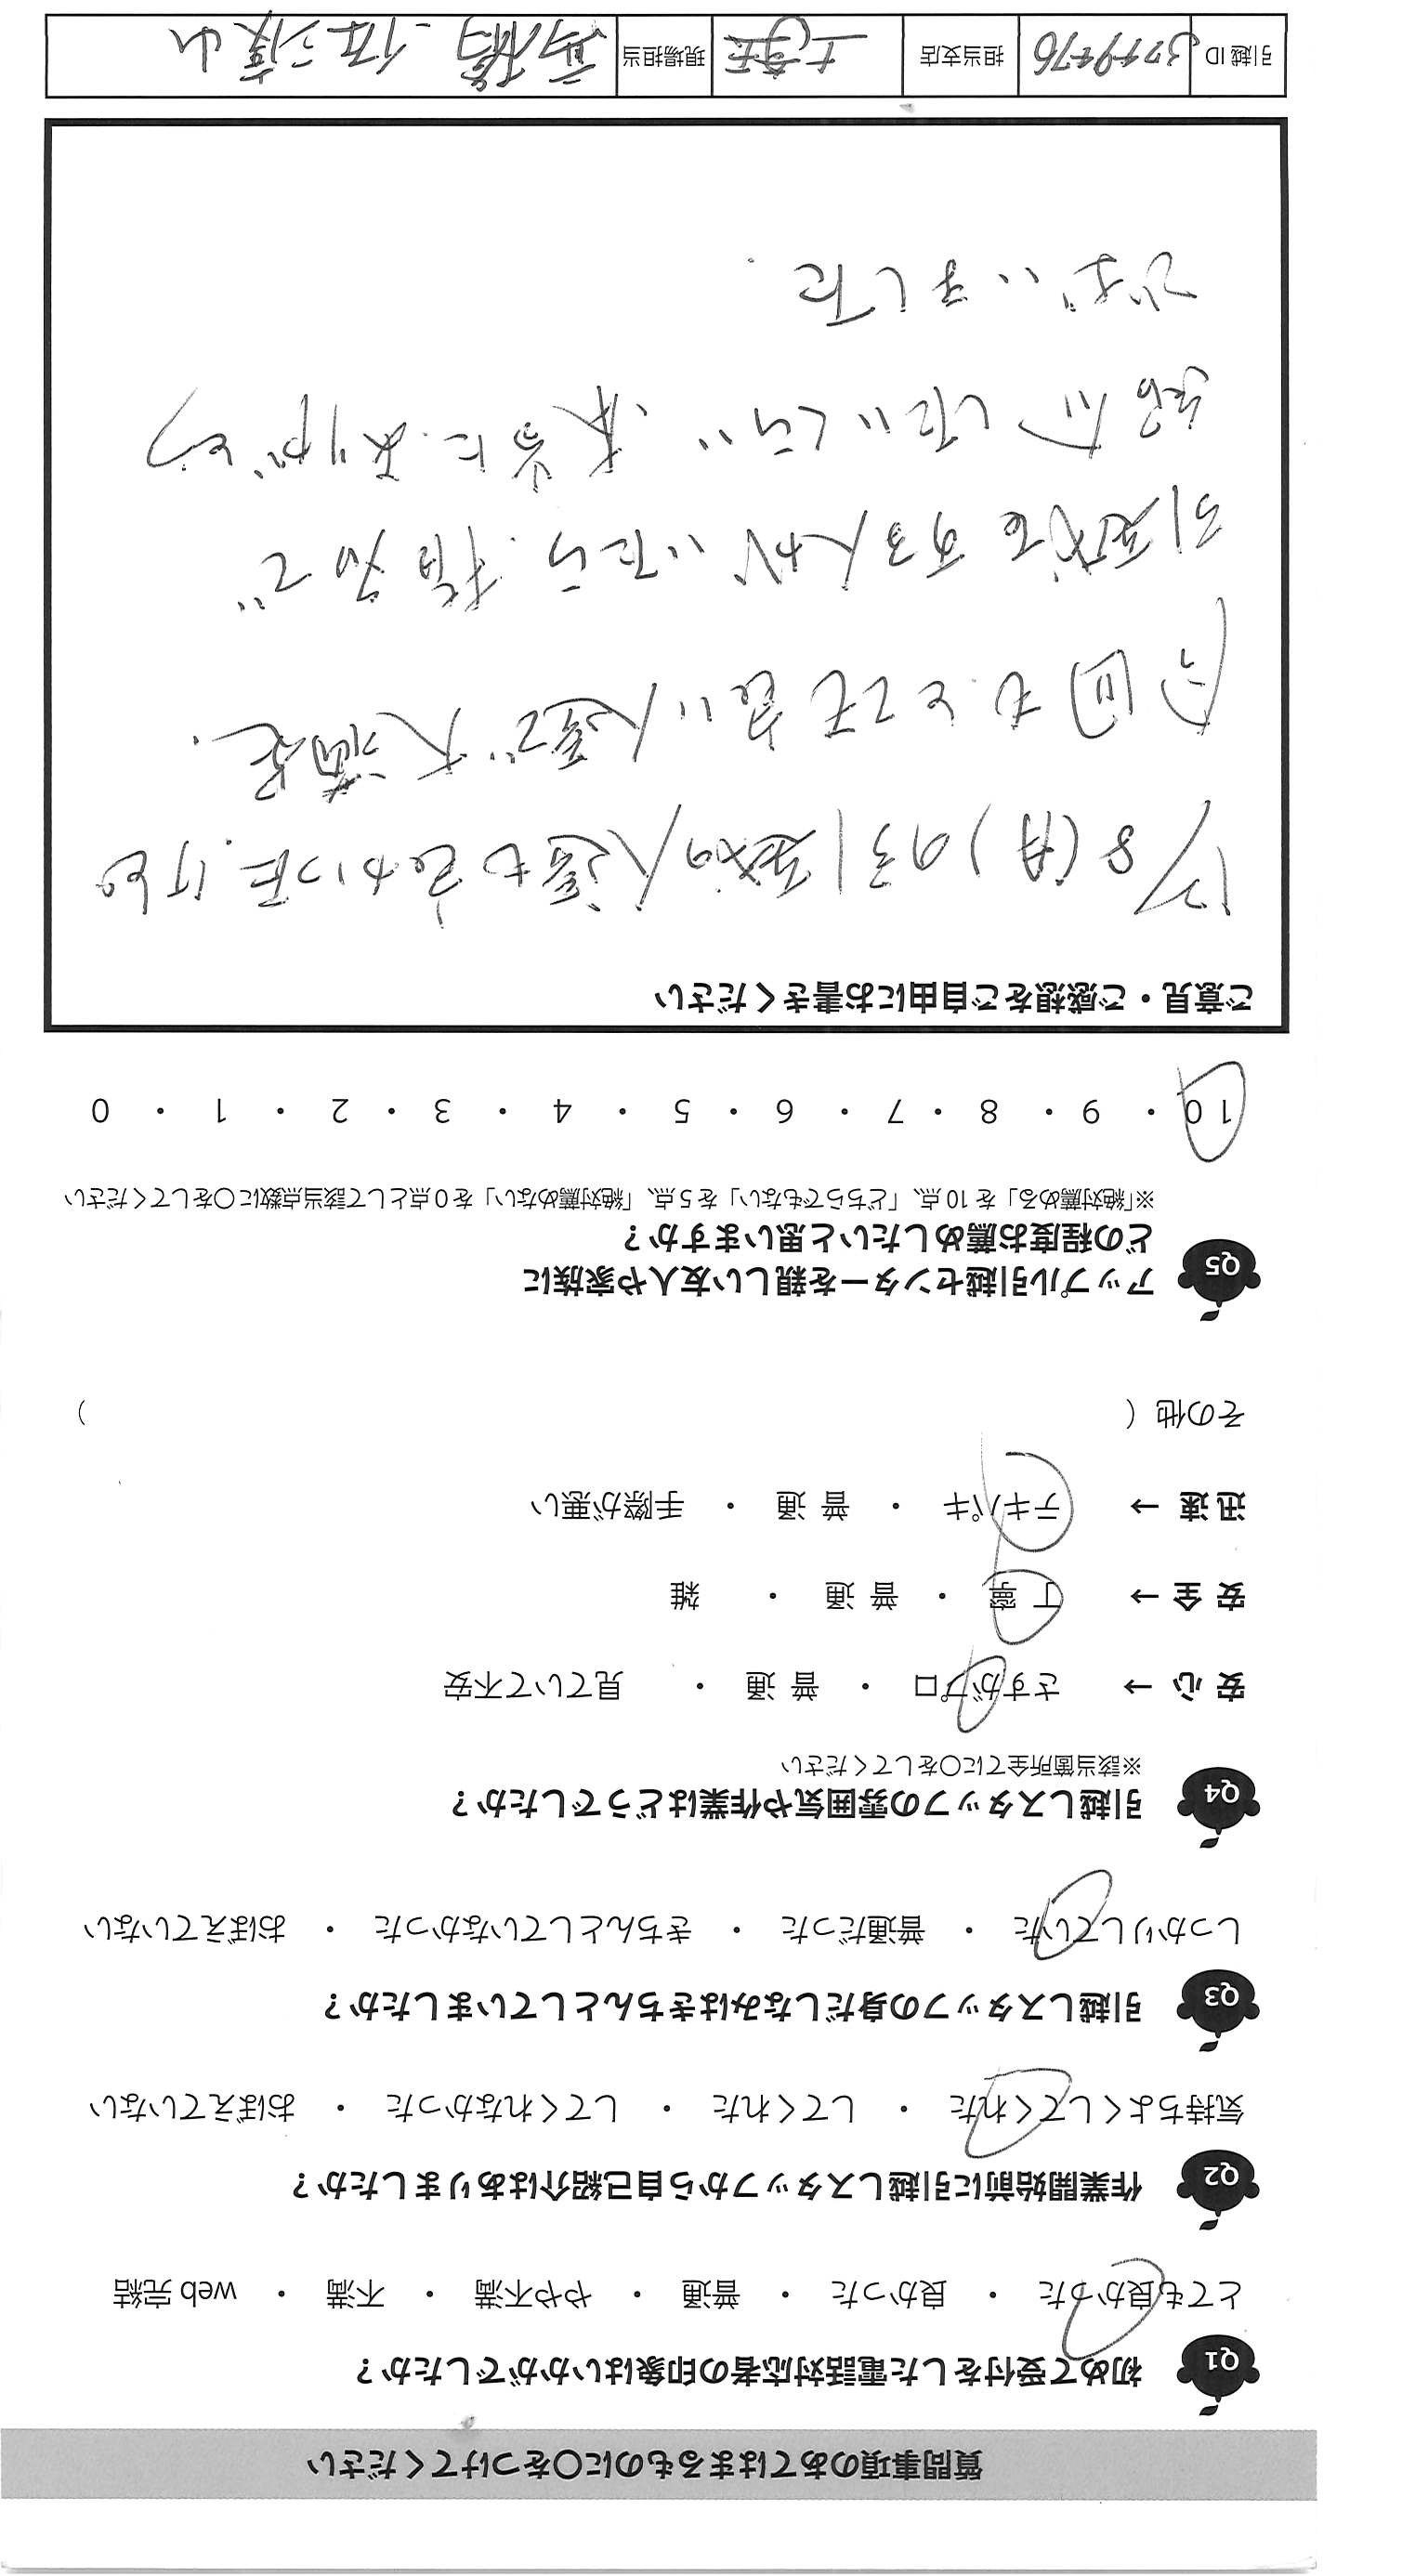 質問事項のあてはまるものに〇をつけてください
Q1 初めて受付をした電話対応者の印象はいかがでしたか？
とても良かった ・ 良かった ・ 普通 ・ やや不満 ・ 不満 ・ web 完結
Q2 作業開始前に引越しスタッフから自己紹介はありましたか？
気持ちよくしてくれた ・ してくれた ・ してくれなかった ・ おぼえていない
Q3 引越しスタッフの身だしなみはきちんとしていましたか？
しっかりしていた ・ 普通だった ・ きちんとしていなかった ・ おぼえていない
Q4 引越しスタッフの雰囲気や作業はどうでしたか？
※該当箇所全てに〇をしてください
安 心 → さすがプロ ・ 普 通 ・ 見ていて不安
安 全 → 丁 寧 ・ 普 通 ・ 雑
迅 速 → テキパキ ・ 普 通 ・ 手際が悪い
その他（ ）
Q5 アップル引越センターを親しい友人や家族に
どの程度お薦めしたいと思いますか？
※「絶対薦める」を 10 点、「どちらでもない」を 5 点、「絶対薦めない」を 0 点として該当点数に〇をしてください
10 ・ 9 ・ 8 ・ 7 ・ 6 ・ 5 ・ 4 ・ 3 ・ 2 ・ 1 ・ 0
ご意見・ご感想をご自由にお書きください
12/8(月)の引越の人達も良かったけど
今回もとても良い人達で大満足.
引越をする人がいたら.指名で
紹介したいくらい.本当に.ありがとう
ございました.
引越 ID 担当支店 現場担当 高橋.佐々木